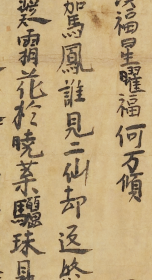 福星曜福何万傾
駕鳳誰見二仙却返
霜花於曉葉驪珠